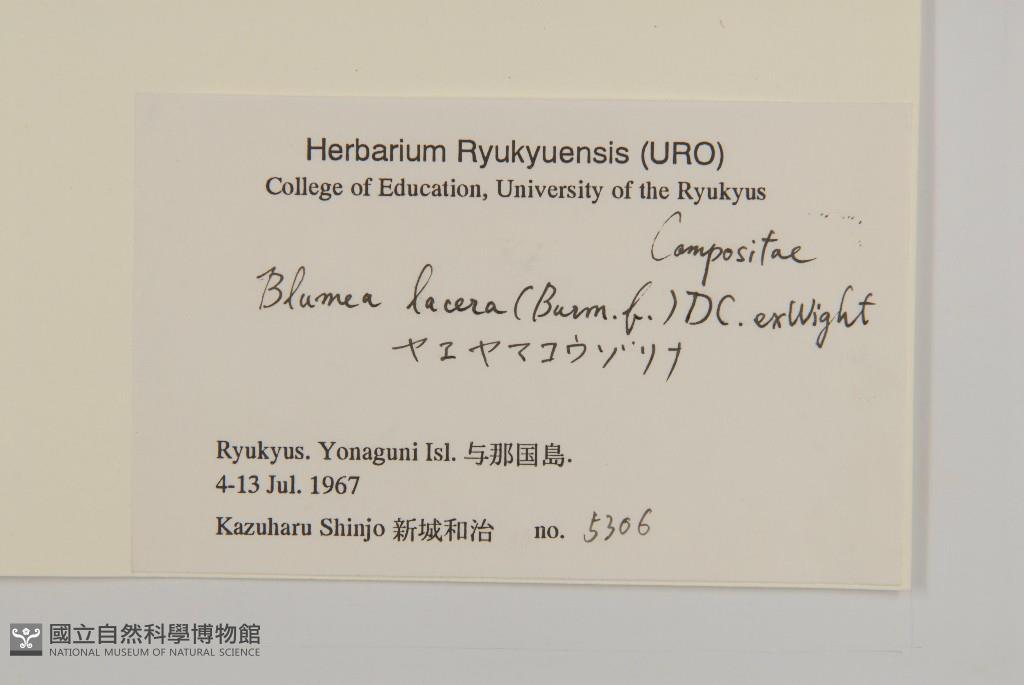 Herbarium Ryukyuensis (URO)
College of Education, University of the Ryukyus
Compositae
Blumea lacera (Burm.f.) DC. ex Wight
ヤエヤマコウゾリナ
Ryukyus. Yonaguni Isl. 与那国島.
4-13 Jul. 1967
Kazuharu Shinjo 新城和治 no. 5306
國立自然科學博物館
NATIONAL MUSEUM OF NATURAL SCIENCE